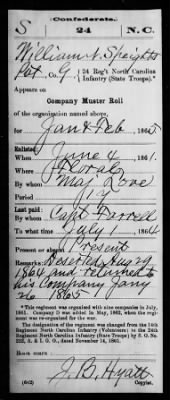 Confederate.
S 24 N.C.
William A. Speights
Pvt, Co. G, 24 Reg't North Carolina
Infantry (State Troops).*
Appears on
Company Muster Roll
of the organization named above,
for Jan & Feb, 1865
Enlisted:
When June 4, 1861.
Where Floral
By whom Maj Love
Period 12
Last paid:
By whom Capt
To what time July 1, 1864
Present or absent Present
Remarks: Deserted Aug 29
1864 and returned to
his Company Jany
26 1865
*This regiment was organized with nine companies in July,
1861. Company D was added in May, 1862, when the regiment
was re-organized for the war.
The designation of the regiment was changed from the 14th
Regiment North Carolina Infantry (Volunteers) to the 24th
Regiment North Carolina Infantry (State Troops) by S. O. No.
222, A. & I. G. O., dated November 14, 1861.
Book mark:
J. B. Hyatt
(642) Copyist.